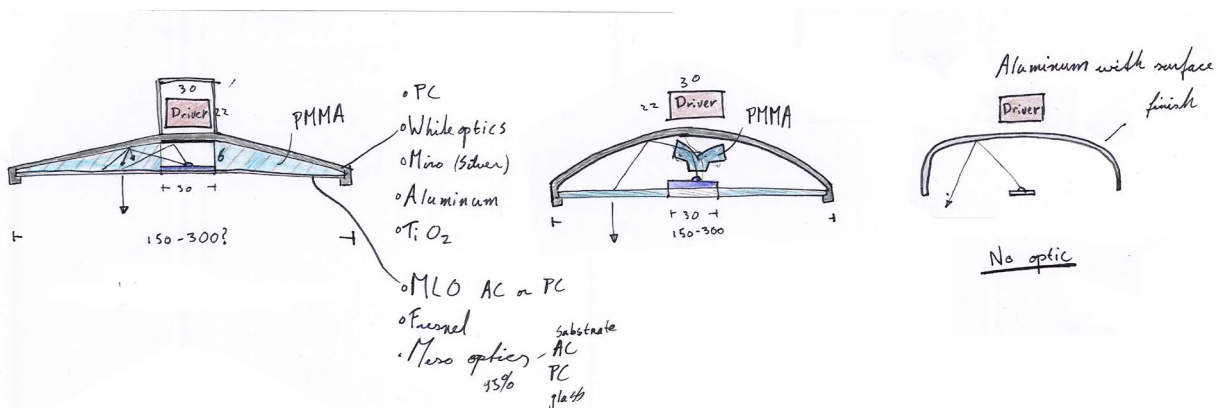 30
Driver
22
PMMA
6
30
150-300?
• PC
• White optics
• Miro (Silver)
• Aluminum
• TiO2
• MLO AC or PC
• Fresnel
• Meso optics - substrate
93%
AC
PC
glass
30
22
Driver
PMMA
30
150-300
Aluminum with surface
finish
Driver
No optic